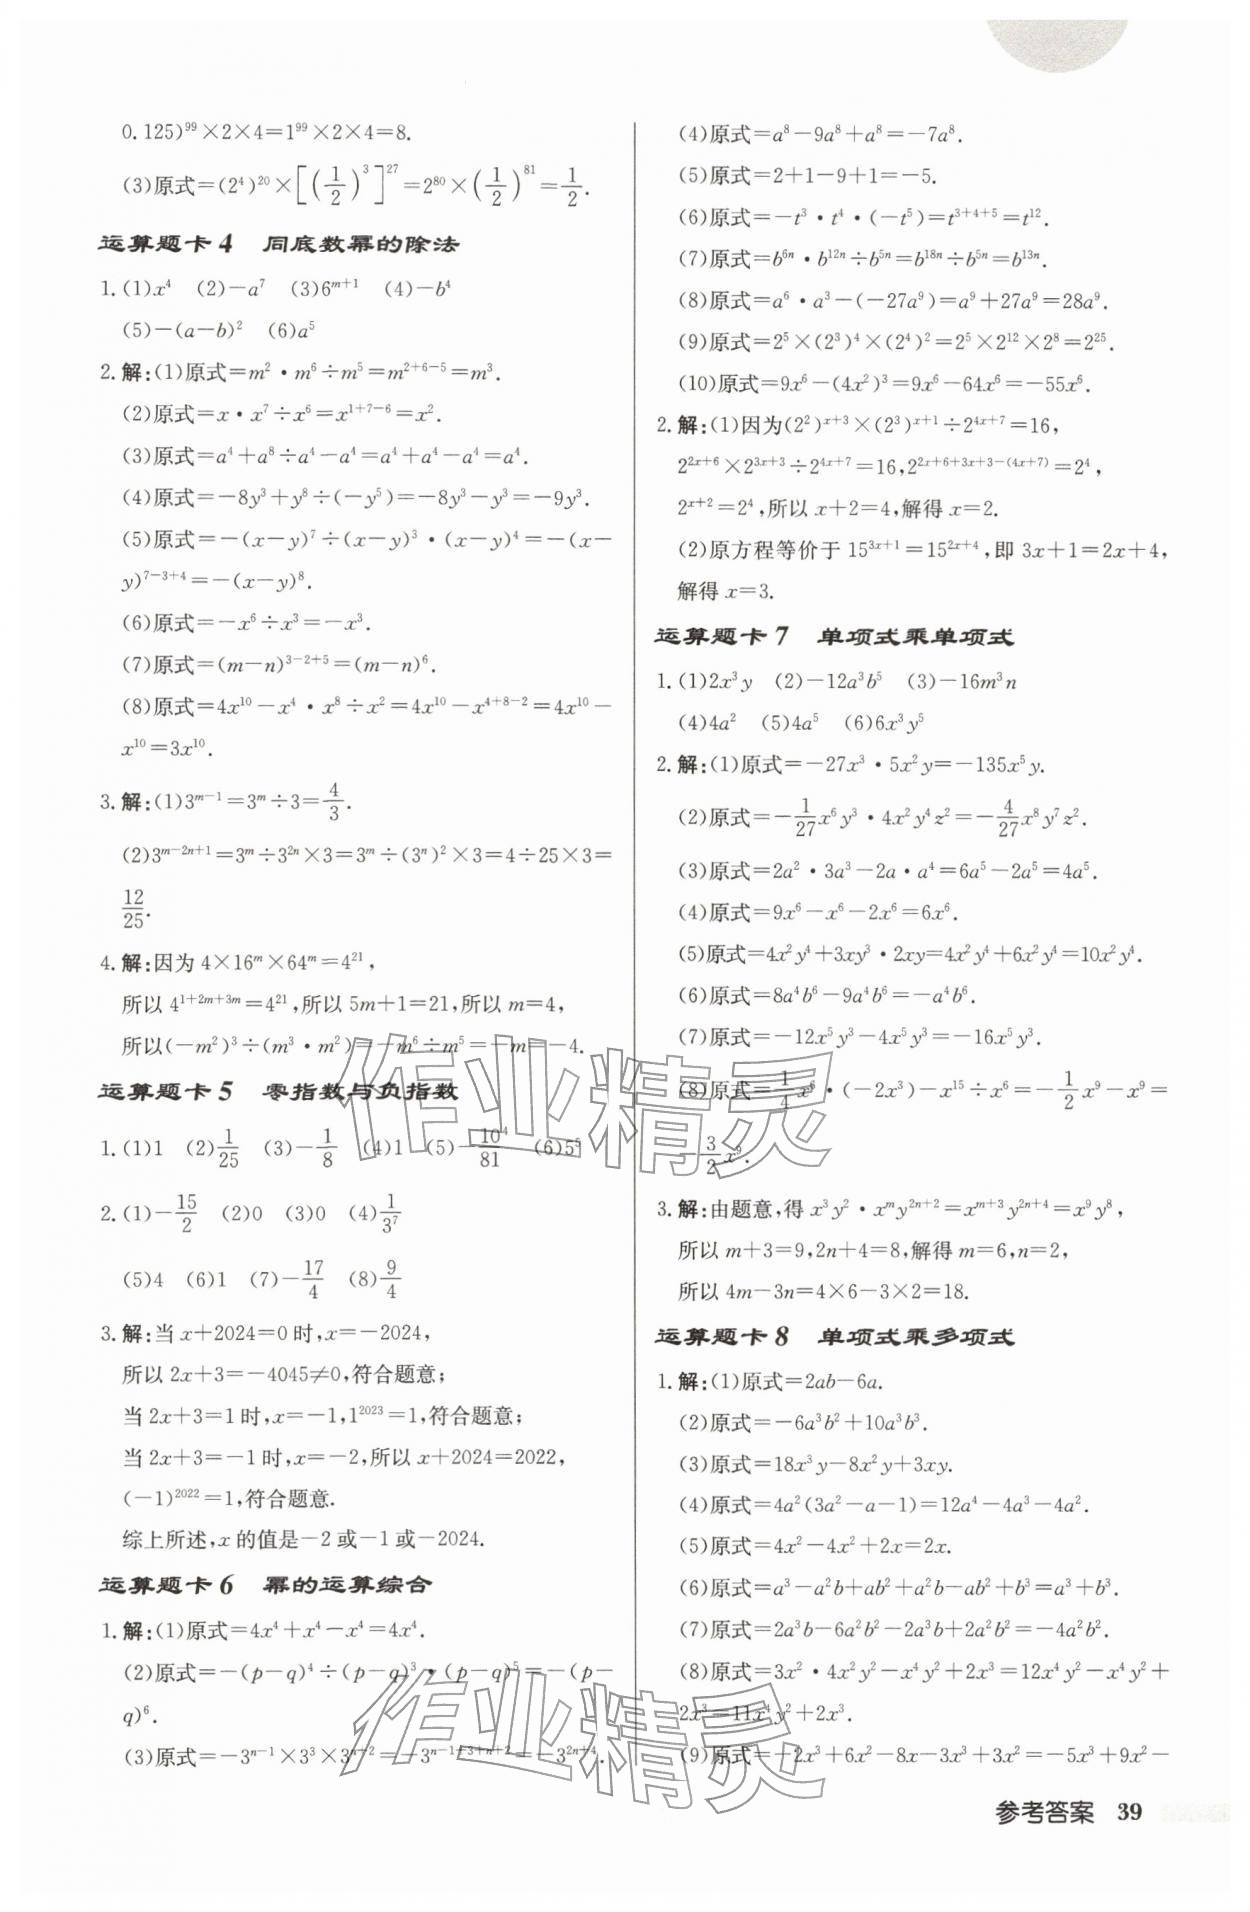 0.125)⁹⁹×2×4=1⁹⁹×2×4=8.
(3)原式=(2⁴)²⁰×[(1/2)³]²⁷=2⁸⁰×(1/2)⁸¹=1/2.
运算题卡4 同底数幂的除法
1.(1)x⁴ (2)-a⁷ (3)6ᵐ⁺¹ (4)-b⁴
(5)-(a-b)² (6)a⁵
2.解:(1)原式=m²·m⁶÷m⁵=m²⁺⁶⁻⁵=m³.
(2)原式=x·x⁷÷x⁶=x¹⁺⁷⁻⁶=x².
(3)原式=a⁴+a⁸÷a⁴-a⁴=a⁴+a⁴-a⁴=a⁴.
(4)原式=-8y³+y⁸÷(-y⁵)=-8y³-y³=-9y³.
(5)原式=-(x-y)⁷÷(x-y)³·(x-y)⁴=-(x-
y)⁷⁻³⁺⁴=-(x-y)⁸.
(6)原式=-x⁶÷x³=-x³.
(7)原式=(m-n)³⁻²⁺⁵=(m-n)⁶.
(8)原式=4x¹⁰-x⁴·x⁸÷x²=4x¹⁰-x⁴⁺⁸⁻²=4x¹⁰-
x¹⁰=3x¹⁰.
3.解:(1)3ᵐ⁻¹=3ᵐ÷3=4/3.
(2)3ᵐ⁻²ⁿ⁺¹=3ᵐ÷3²ⁿ×3=3ᵐ÷(3ⁿ)²×3=4÷25×3=
12/25.
4.解:因为4×16ᵐ×64ᵐ=4²¹,
所以4¹⁺²ᵐ⁺³ᵐ=4²¹,所以5m+1=21,所以m=4,
所以(-m²)³÷(m³·m²)=-m⁶÷m⁵=-m=-4.
运算题卡5 零指数与负指数
1.(1)1 (2)1/25 (3)-1/8 (4)1 (5)-10⁴/81 (6)5⁵
2.(1)-15/2 (2)0 (3)0 (4)1/3⁷
(5)4 (6)1 (7)-17/4 (8)9/4
3.解:当x+2024=0时,x=-2024,
所以2x+3=-4045≠0,符合题意;
当2x+3=1时,x=-1,1²⁰²³=1,符合题意;
当2x+3=-1时,x=-2,所以x+2024=2022,
(-1)²⁰²²=1,符合题意.
综上所述,x的值是-2或-1或-2024.
运算题卡6 幂的运算综合
1.解:(1)原式=4x⁴+x⁴-x⁴=4x⁴.
(2)原式=-(p-q)⁴÷(p-q)³·(p-q)⁵=-(p-
q)⁶.
(3)原式=-3ⁿ⁻¹×3³×3ⁿ⁺²=-3ⁿ⁻¹⁺³⁺ⁿ⁺²=-3²ⁿ⁺⁴.
(4)原式=a⁸-9a⁸+a⁸=-7a⁸.
(5)原式=2+1-9+1=-5.
(6)原式=-t³·t⁴·(-t⁵)=t³⁺⁴⁺⁵=t¹².
(7)原式=b⁶ⁿ·b¹²ⁿ÷b⁵ⁿ=b¹⁸ⁿ÷b⁵ⁿ=b¹³ⁿ.
(8)原式=a⁶·a³-(-27a⁹)=a⁹+27a⁹=28a⁹.
(9)原式=2⁵×(2³)⁴×(2⁴)²=2⁵×2¹²×2⁸=2²⁵.
(10)原式=9x⁶-(4x²)³=9x⁶-64x⁶=-55x⁶.
2.解:(1)因为(2²)ˣ⁺³×(2³)ˣ⁺¹÷2⁴ˣ⁺⁷=16,
2²ˣ⁺⁶×2³ˣ⁺³÷2⁴ˣ⁺⁷=16,2²ˣ⁺⁶⁺³ˣ⁺³⁻⁽⁴ˣ⁺⁷⁾=2⁴,
2ˣ⁺²=2⁴,所以x+2=4,解得x=2.
(2)原方程等价于15³ˣ⁺¹=15²ˣ⁺⁴,即3x+1=2x+4,
解得x=3.
运算题卡7 单项式乘单项式
1.(1)2x³y (2)-12a³b⁵ (3)-16m³n
(4)4a² (5)4a⁵ (6)6x³y⁵
2.解:(1)原式=-27x³·5x²y=-135x⁵y.
(2)原式=-1/27x⁶y³·4x²y⁴z²=-4/27x⁸y⁷z².
(3)原式=2a²·3a³-2a·a⁴=6a⁵-2a⁵=4a⁵.
(4)原式=9x⁶-x⁶-2x⁶=6x⁶.
(5)原式=4x²y⁴+3xy³·2xy=4x²y⁴+6x²y⁴=10x²y⁴.
(6)原式=8a⁴b⁶-9a⁴b⁶=-a⁴b⁶.
(7)原式=-12x⁵y³-4x⁵y³=-16x⁵y³.
(8)原式=1/4x⁶·(-2x³)-x¹⁵÷x⁶=-1/2x⁹-x⁹=
-3/2x⁹.
3.解:由题意,得x³y²·xᵐy²ⁿ⁺²=xᵐ⁺³y²ⁿ⁺⁴=x⁹y⁸,
所以m+3=9,2n+4=8,解得m=6,n=2,
所以4m-3n=4×6-3×2=18.
运算题卡8 单项式乘多项式
1.解:(1)原式=2ab-6a.
(2)原式=-6a³b²+10a³b³.
(3)原式=18x³y-8x²y+3xy.
(4)原式=4a²(3a²-a-1)=12a⁴-4a³-4a².
(5)原式=4x²-4x²+2x=2x.
(6)原式=a³-a²b+ab²+a²b-ab²+b³=a³+b³.
(7)原式=2a³b-2a²b²-2a³b+2a²b²=-4a²b².
(8)原式=3x²·4x²y²-x⁴y²+2x³=12x⁴y²-x⁴y²+
2x³=11x⁴y²+2x³.
(9)原式=-2x³+6x²-8x-3x³+3x²=-5x³+9x²-
参考答案 39
作业精灵
作业精灵